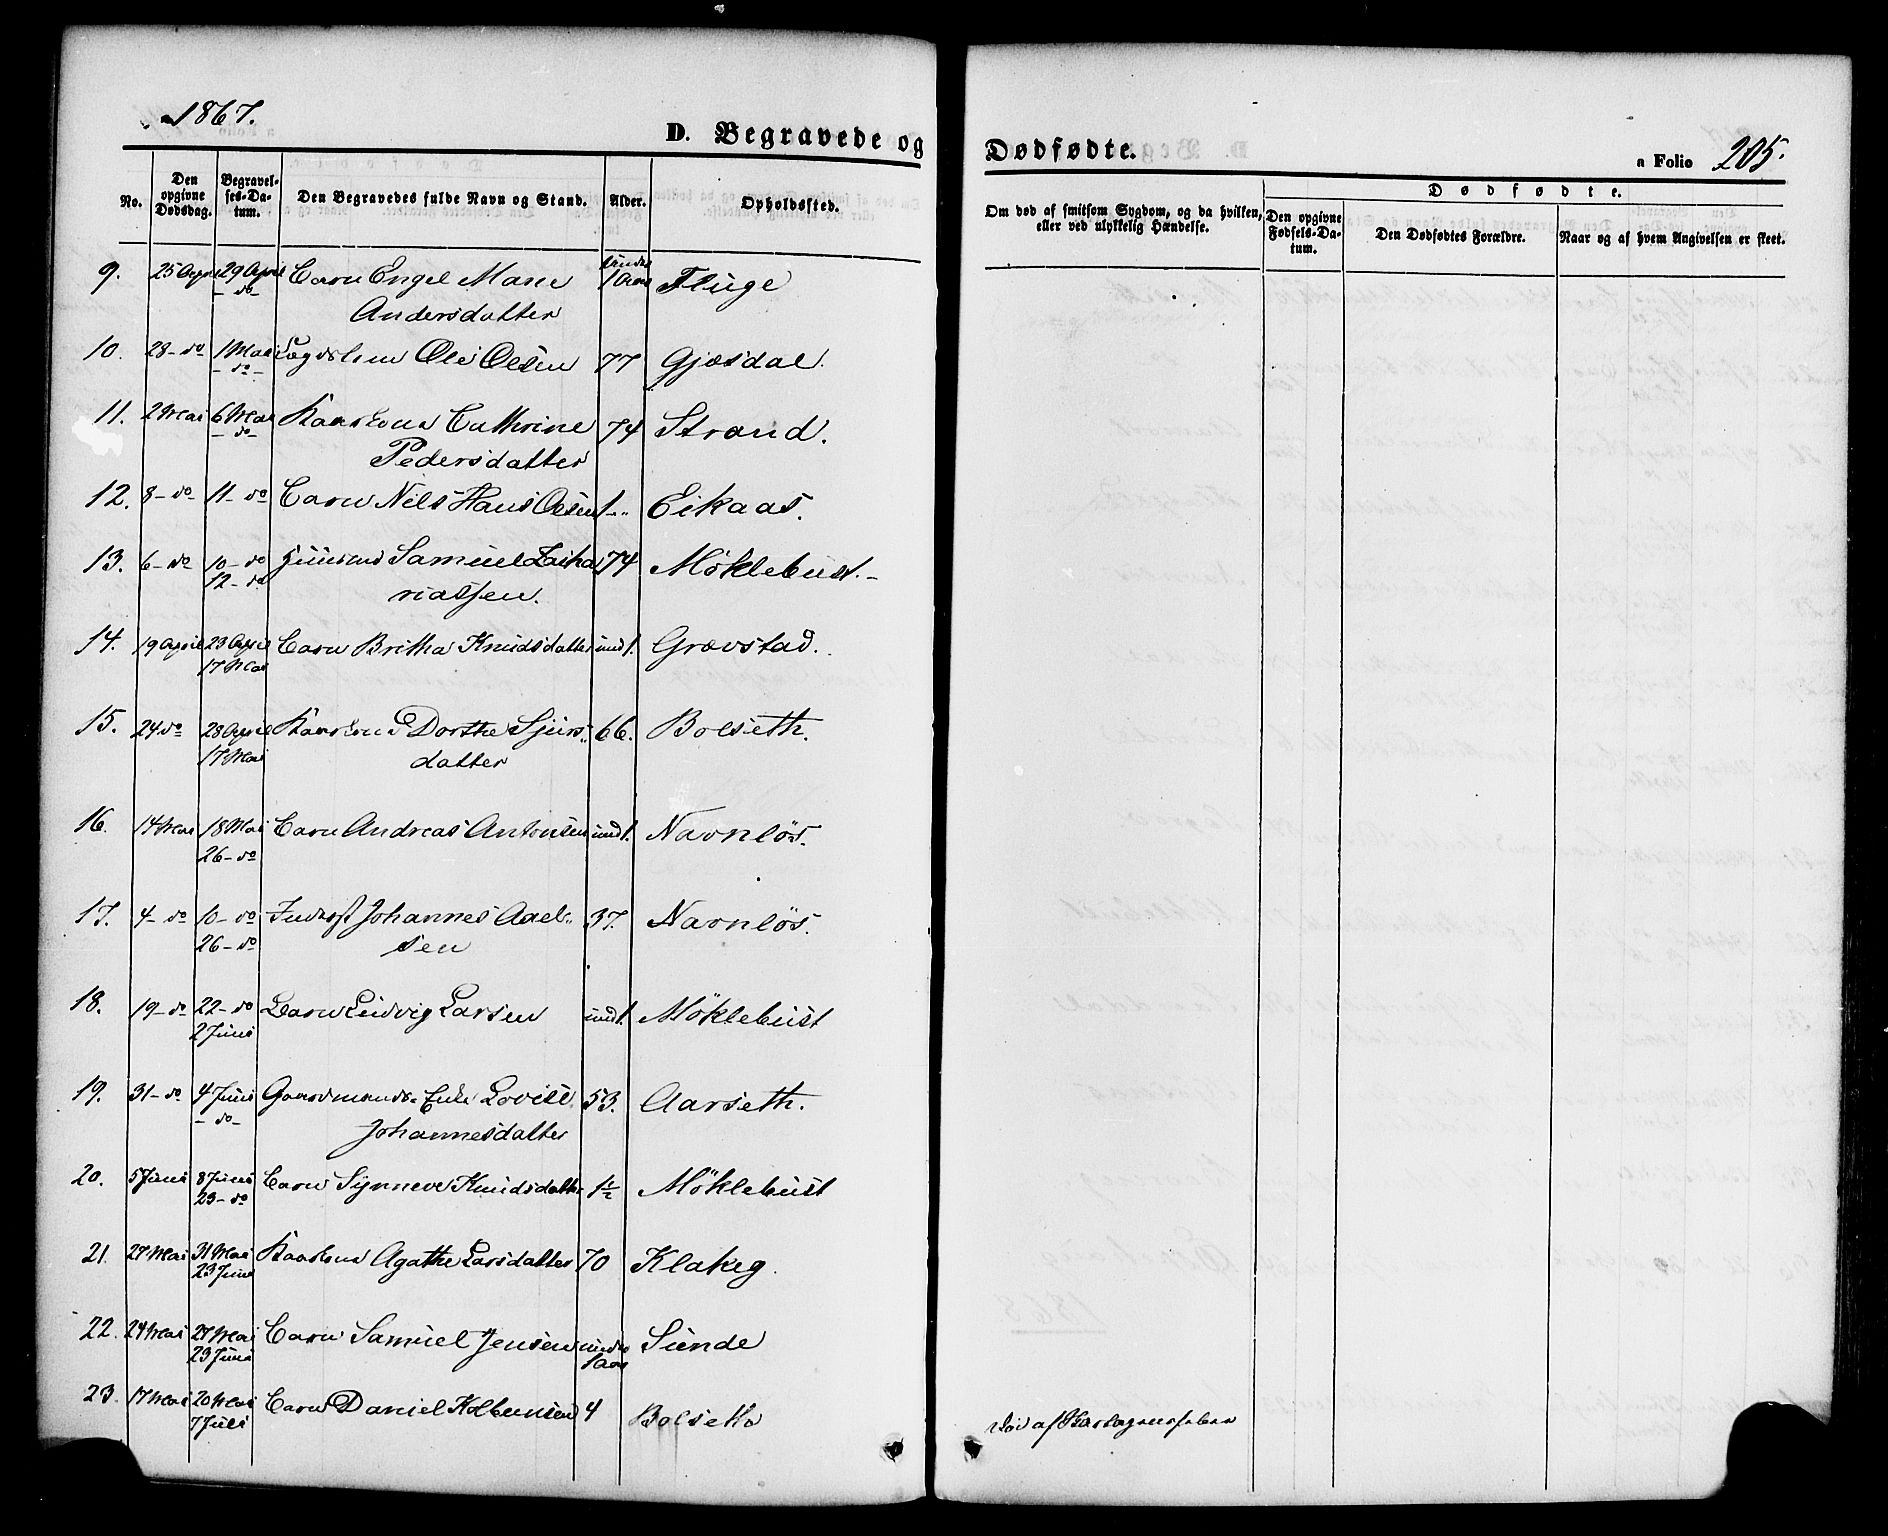 1867.
D. Begravede og
Dødfødte.
a Folio 205.
No.
Den opgivne Dødsdag.
Begravelses-Datum.
Den Begravedes fulde Navn og Stand.
Alder.
Opholdssted.
Om død af smitsom Sygdom, og da hvilken, eller ved ulykkelig Hændelse.
Dødfødte.
Den opgivne Fødsels-Datum.
Den Dødfødtes Forældre.
Naar og af hvem Angivelsen er skeet.
9. 25 April 29 April Barn Engel Marie under 1 Aar Fluge
- do - Andersdatter
10. 28 - do 1 Mai Lægdslem Ole Olsen 77 Gjøsdal.
- do -
11. 2 Mai 6 Mai Kaarkone Cathrine 74 Strand.
- do - Pedersdatter
12. 8 - do 11 - do Barn Nils Hans Olsen 1 Eikaas.
13. 6 - do 10 - do Huusmd Samuel Zacha 74 Möklebust.
12 - do riassen.
14. 19 April 23 April Barn Britha Knudsdatter und 1. Grøvstad.
17 Mai
15. 24 do 28 April Kaarkone Dorthe Sjurs 66. Bolseth.
17 Mai datter
16. 14 Mai 18 Mai Barn Andreas Antonsen und 1. Navnlös.
26 - do
17. 4 - do 10 - do Inderst Johannes Aael 37. Navnlös.
26 - do sen
18. 19 - do 22 - do Barn Ludvig Larsen und 1. Möklebust
2 Juni
19. 31 - do 4 Juni Gaardmands Enke Lovise 53. Aarseth.
- do - Johannesdatter
20. 5 Juni 8 Juni Barn Synneve Knudsdatter 1½ Möklebust
23 - do
21. 27 Mai 31 Mai Kaarkone Agathe Larsdatter 70 Klakeg.
23 Juni
22. 24 Mai 27 Mai Barn Samuel Jensen under 1 aar Sunde
23 Juni
23. 17 Mai 20 Mai Barn Daniel Kolbensen 4 Bolseth
7 Juli
Död af
1868